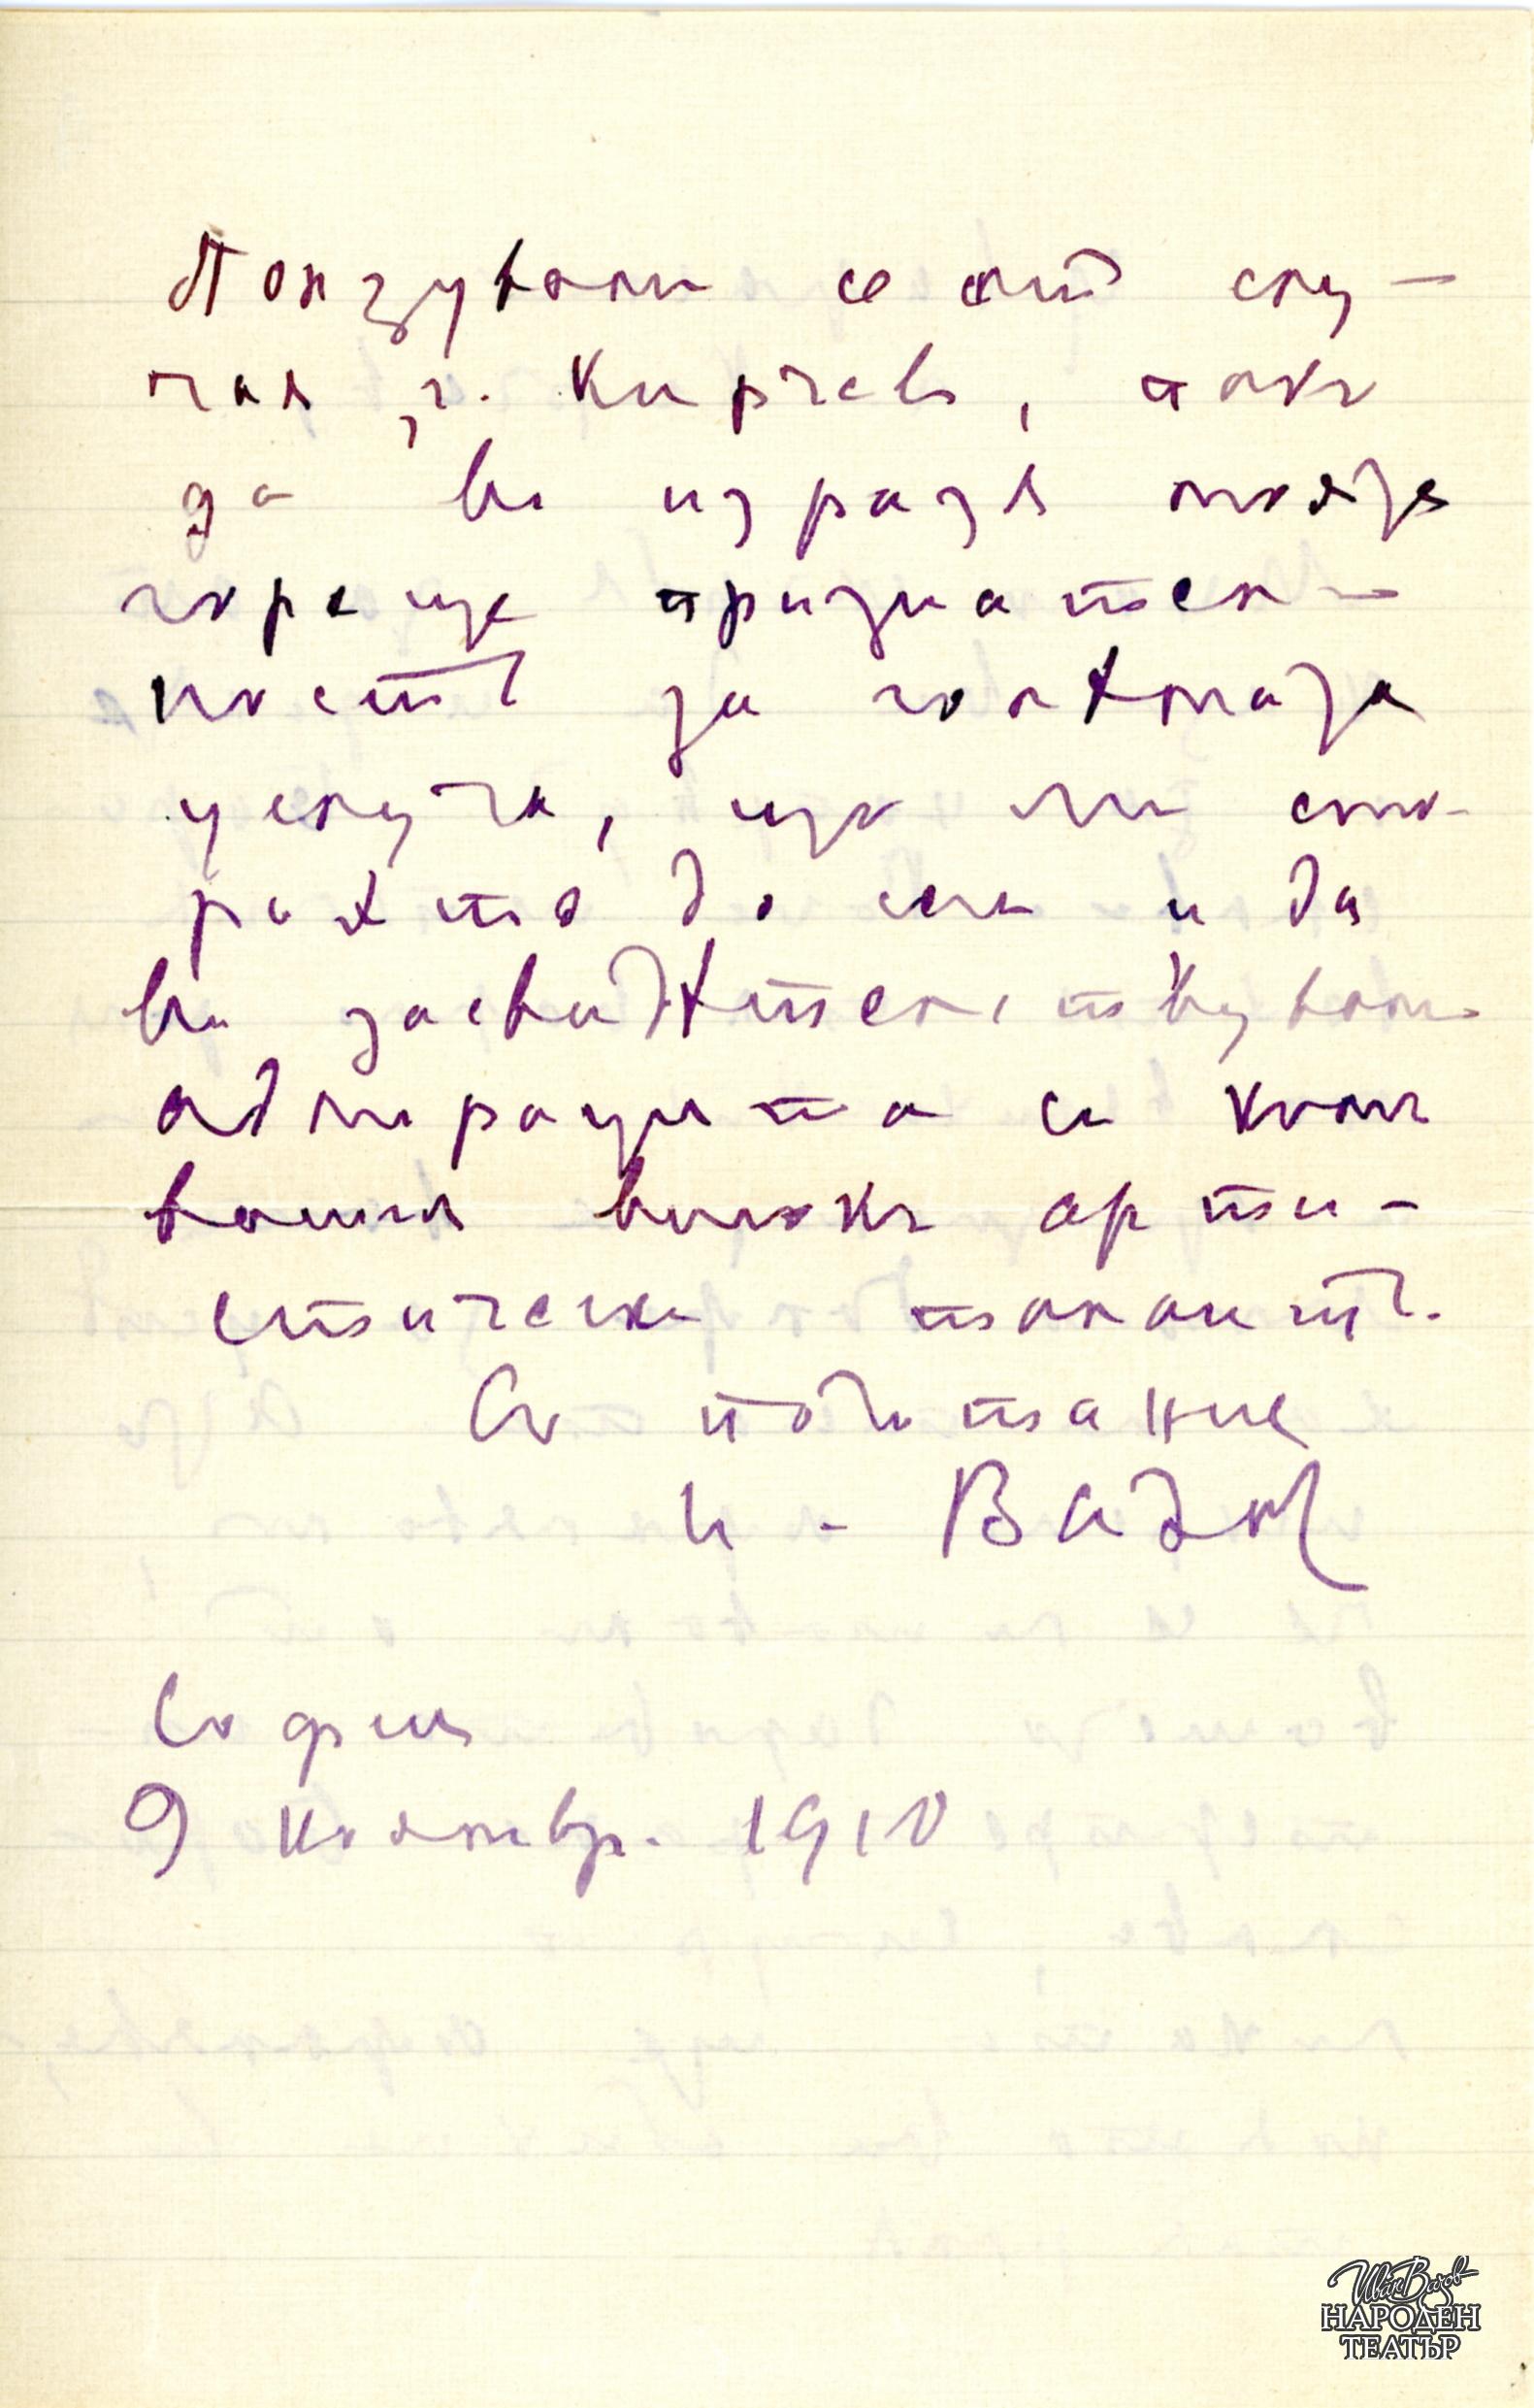 Ползувамъ се отъ слу-
чая, г. Кирчевъ, пакъ
да Ви изразя моята
гореща признател-
ность за голѣмата
услуга, що ми сто-
рихте до сега и да
Ви засвидѣтелствувамъ
адмирацията си къмъ
вашия високъ арти-
стически талантъ.
Съ почитание
И. Вазовъ
София
9 Ноемвр. 1910
Иван Вазов
НАРОДЕН
ТЕАТЪР